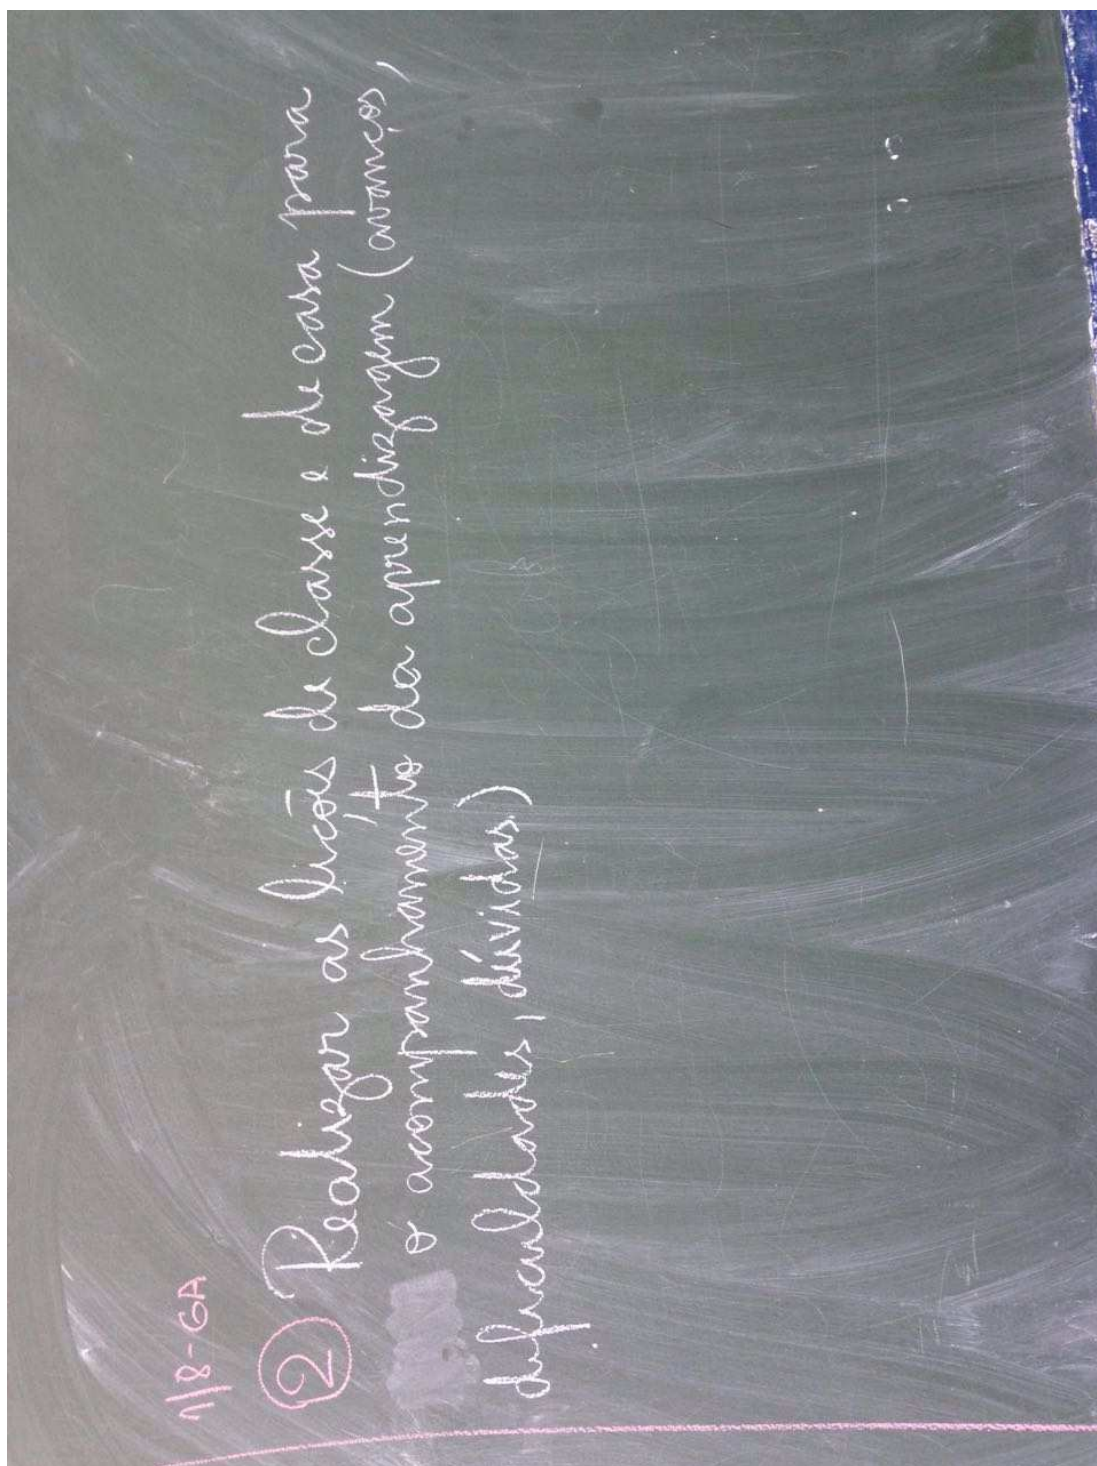 1/8-6A
② Realizar as lições de classe e de casa para
o acompanhamento da aprendizagem (avanços,
dificuldades, dúvidas.)